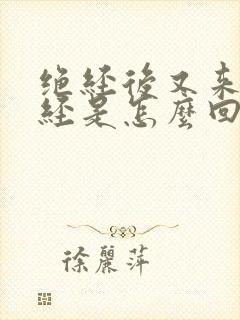 绝经後又来
经是怎麽回
徐麗萍